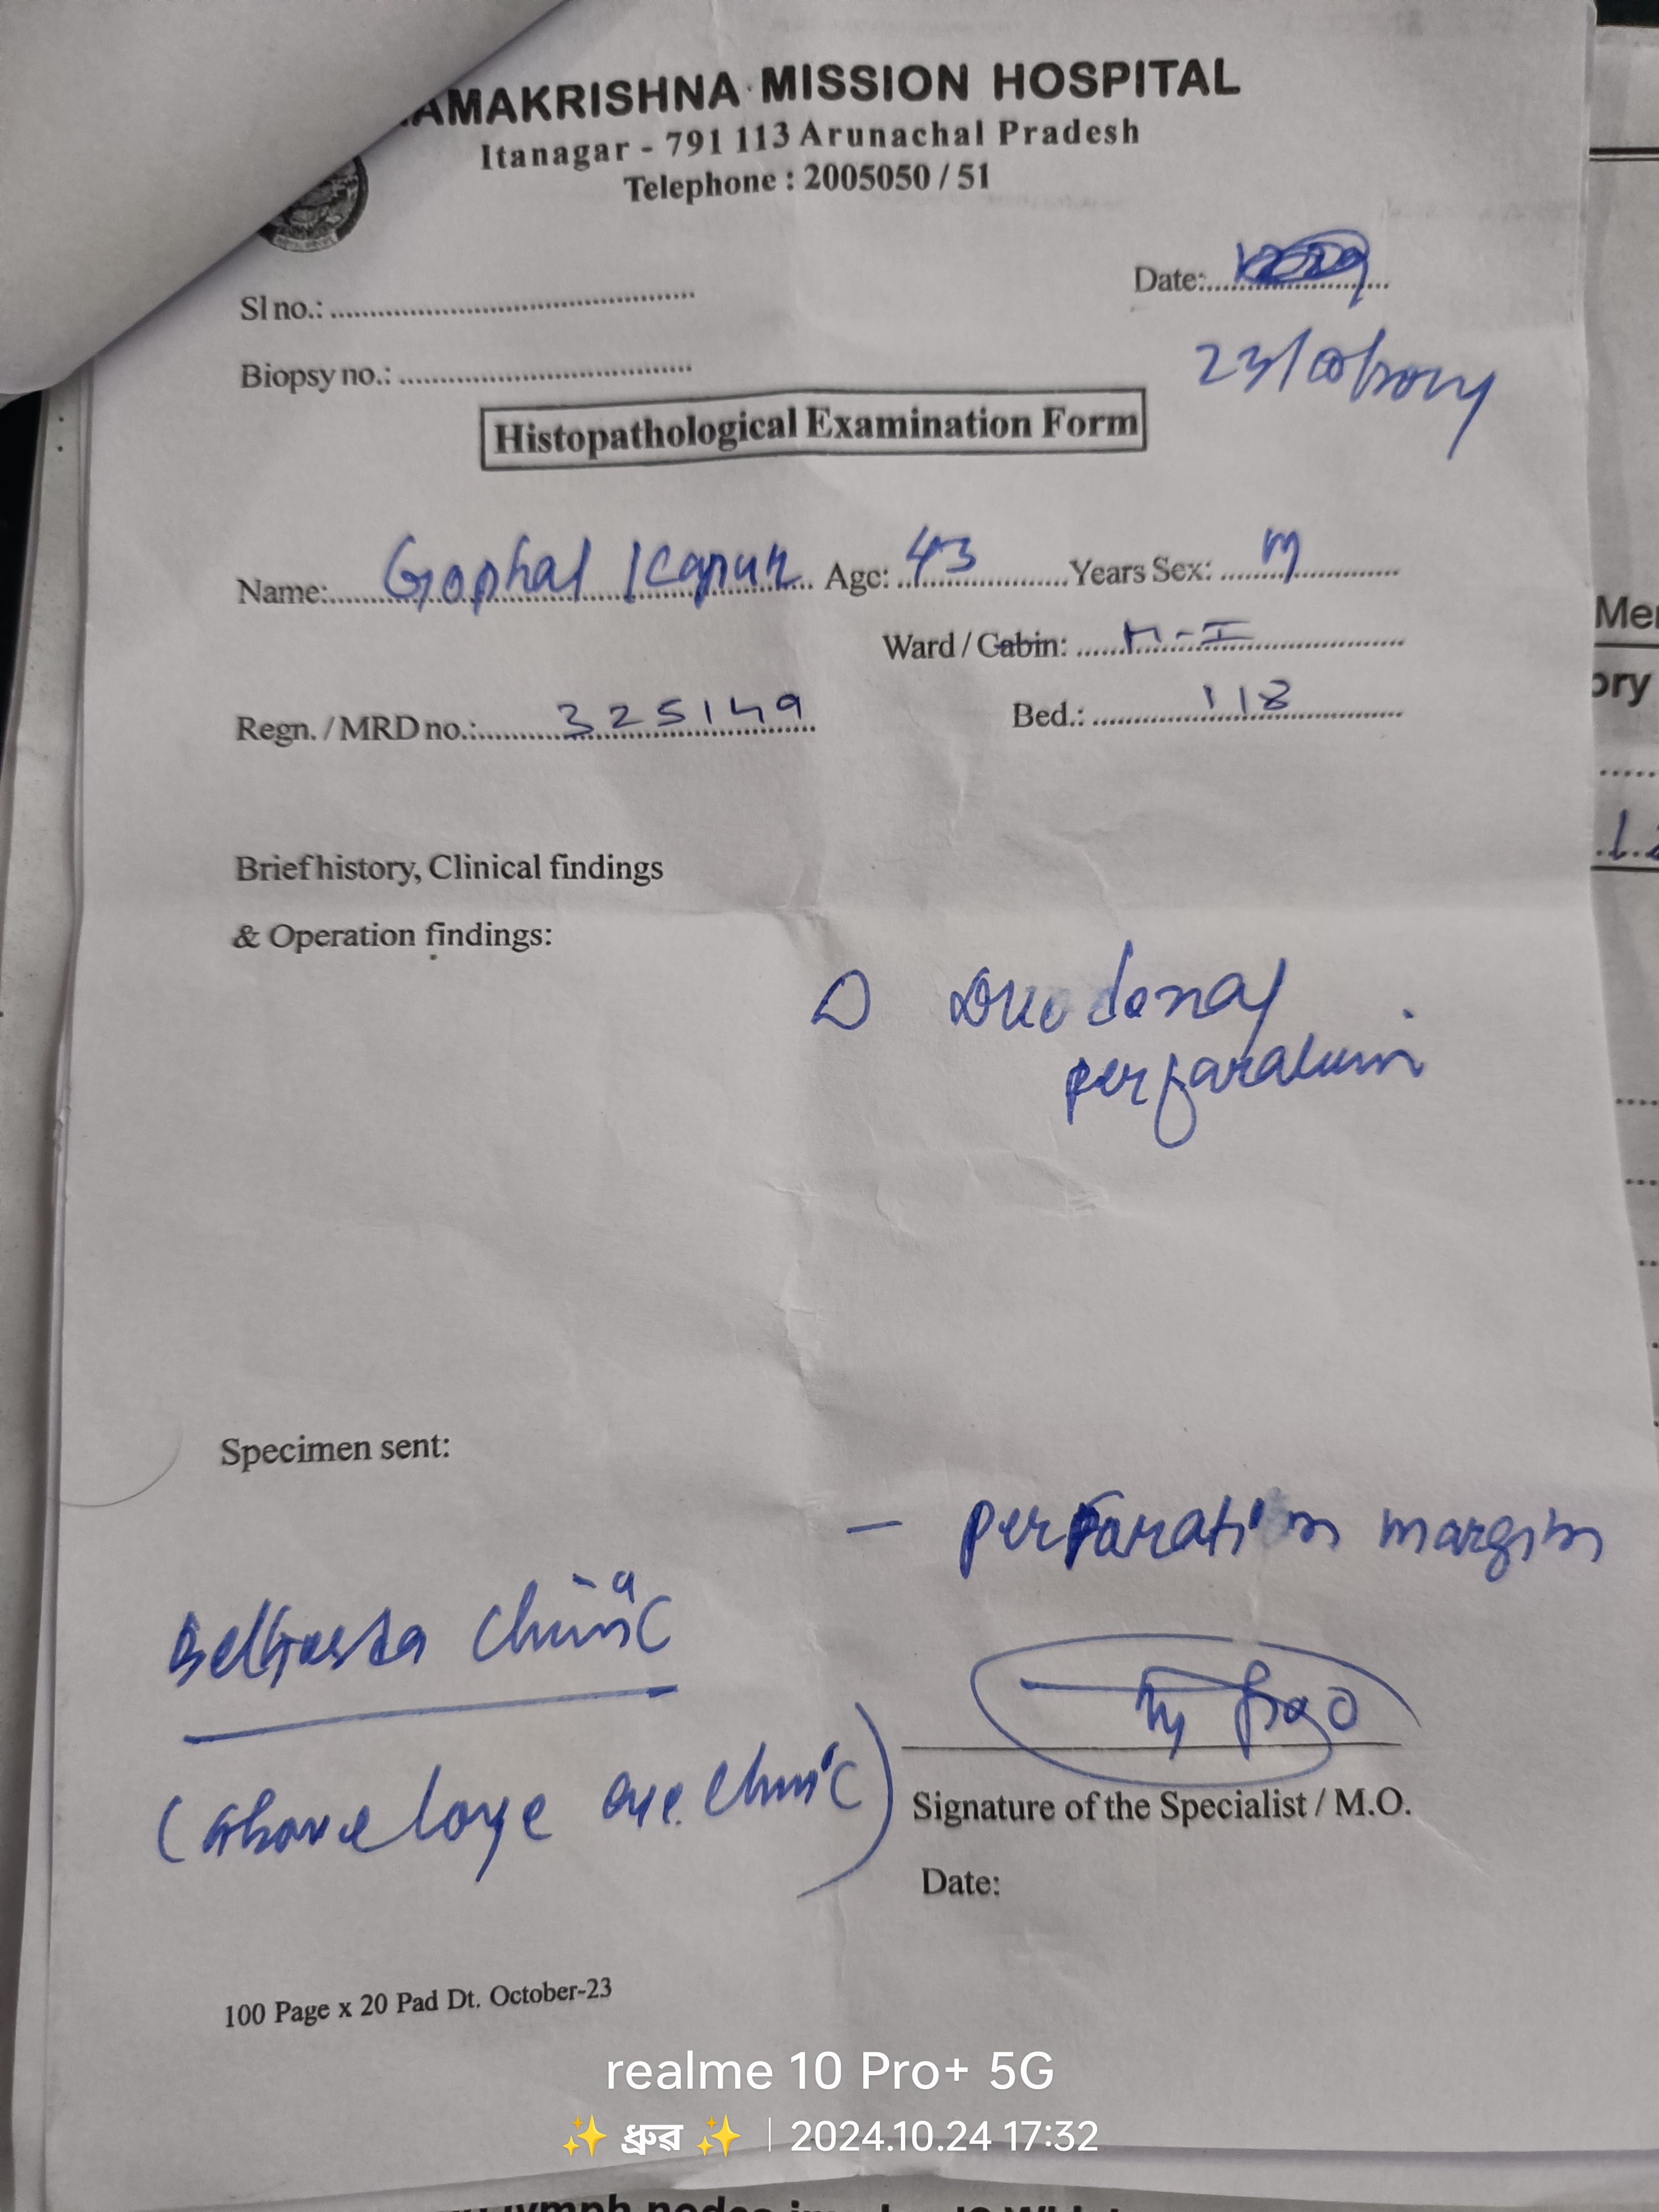 AMAKRISHNA MISSION HOSPITAL
Itanagar - 791 113 Arunachal Pradesh
Telephone : 2005050 / 51
Sl no.:
Date:
Biopsy no.:
23/
Histopathological Examination Form
Name: Gophal Age: 43 Years Sex: M
Ward / Cabin: M-I
Regn. / MRD no.: 325149 Bed.: 118
Brief history, Clinical findings
& Operation findings:
Duodenal
Specimen sent:
- perforation margin
Clinic
(above eye clinic)
Signature of the Specialist / M.O.
Date:
100 Page x 20 Pad Dt. October-23
realme 10 Pro+ 5G
✨ ধ্রুৱ ✨ | 2024.10.24 17:32
Me
ory